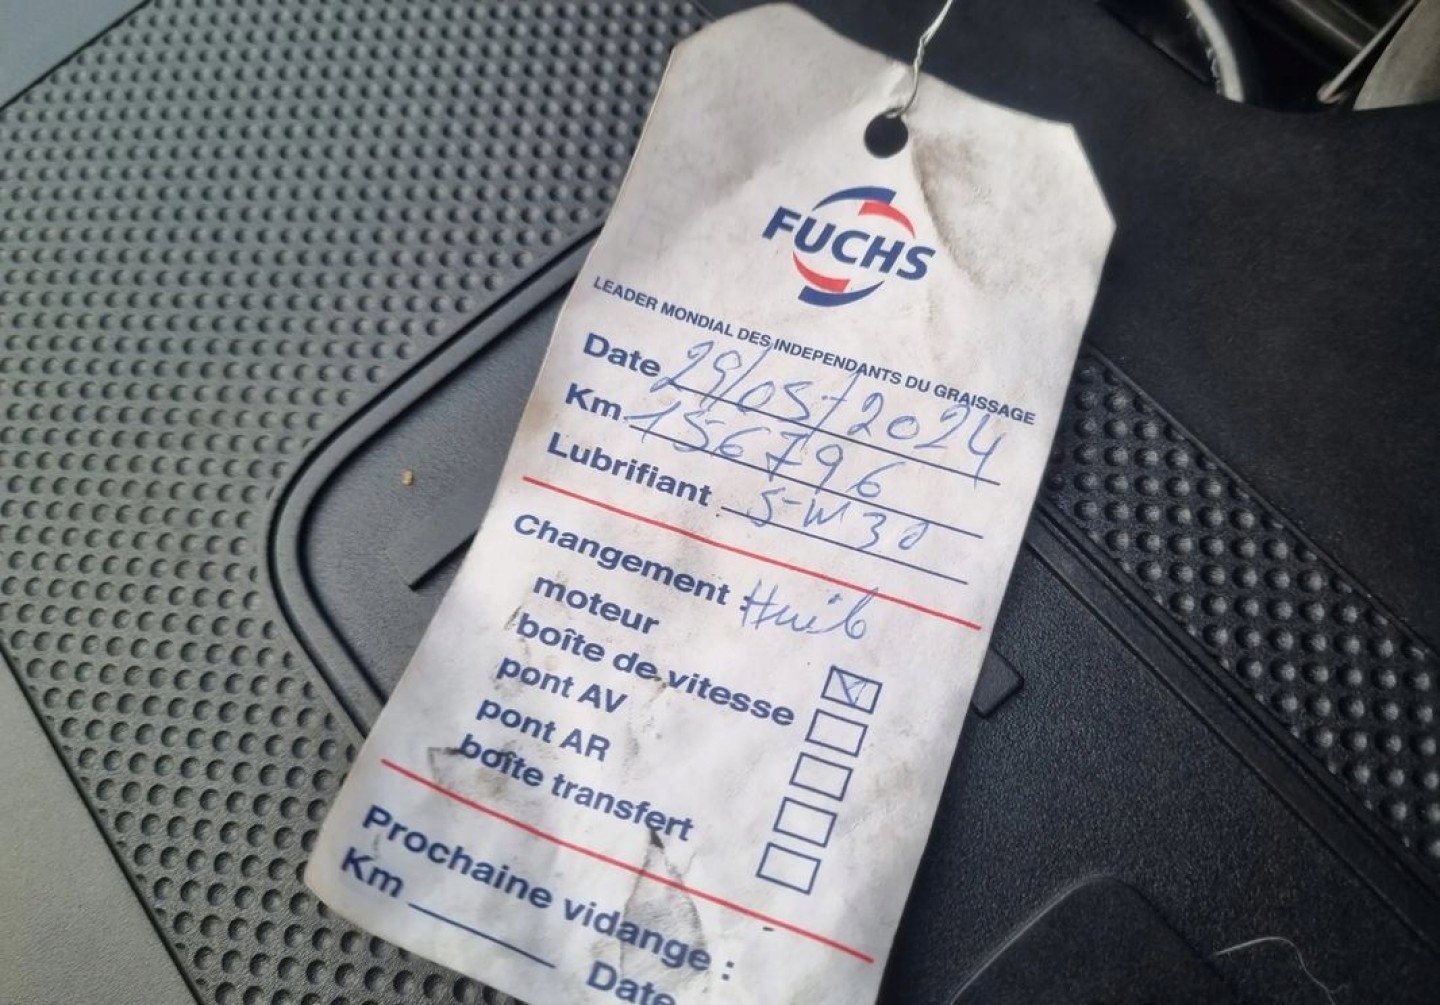 FUCHS
LEADER MONDIAL DES INDEPENDANTS DU GRAISSAGE
Date 29/05/2024
Km 156796
Lubrifiant 5-W30
Changement : Huile
moteur
boîte de vitesse
pont AV
pont AR
boîte transfert
Prochaine vidange :
Km Date